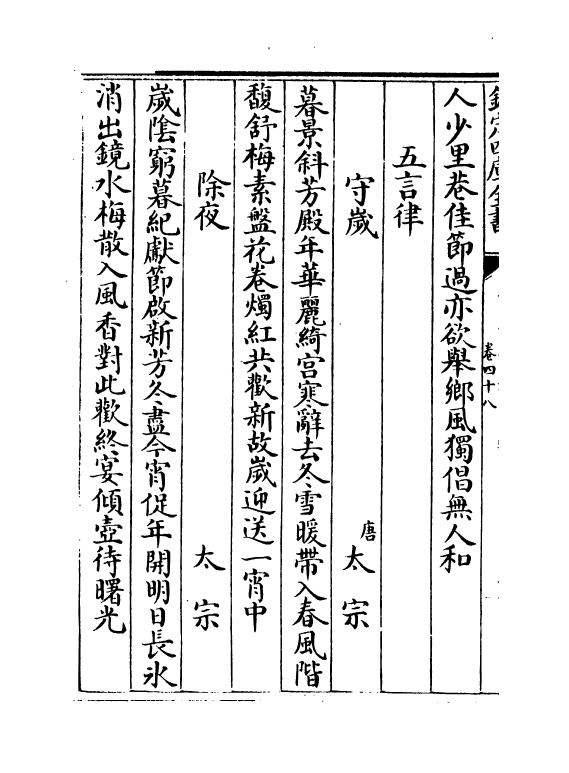 欽定四庫全書
卷四十八
人少里巷佳節過亦欲舉鄉風獨倡無人和
五言律
守歲 唐太宗
暮景斜芳殿年華麗綺宫寒辭去冬雪暖帶入春風階
馥舒梅素盤花卷燭紅共歡新故歲迎送一宵中
除夜 太宗
歲陰窮暮紀獻節啟新芳冬盡今宵促年開明日長氷
消出鏡水梅散入風香對此歡終宴傾壺待曙光